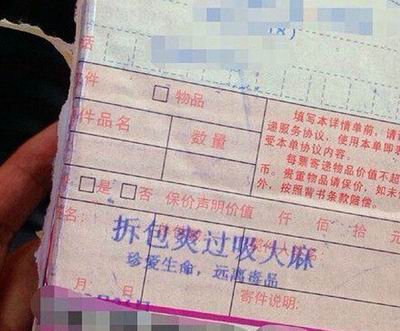 话
件 □ 物品
填写本详情单前,请
递服务协议,使用本单即
受本单协议内容。
件品名 数量
每票寄递物品价值不超
。贵重物品请保价,如未
外,按照背书条款赔偿。
□是 □否 保价声明价值 仟 佰 拾 元
拆包爽过吸大麻
珍爱生命,远离毒品
月 日
寄件说明: